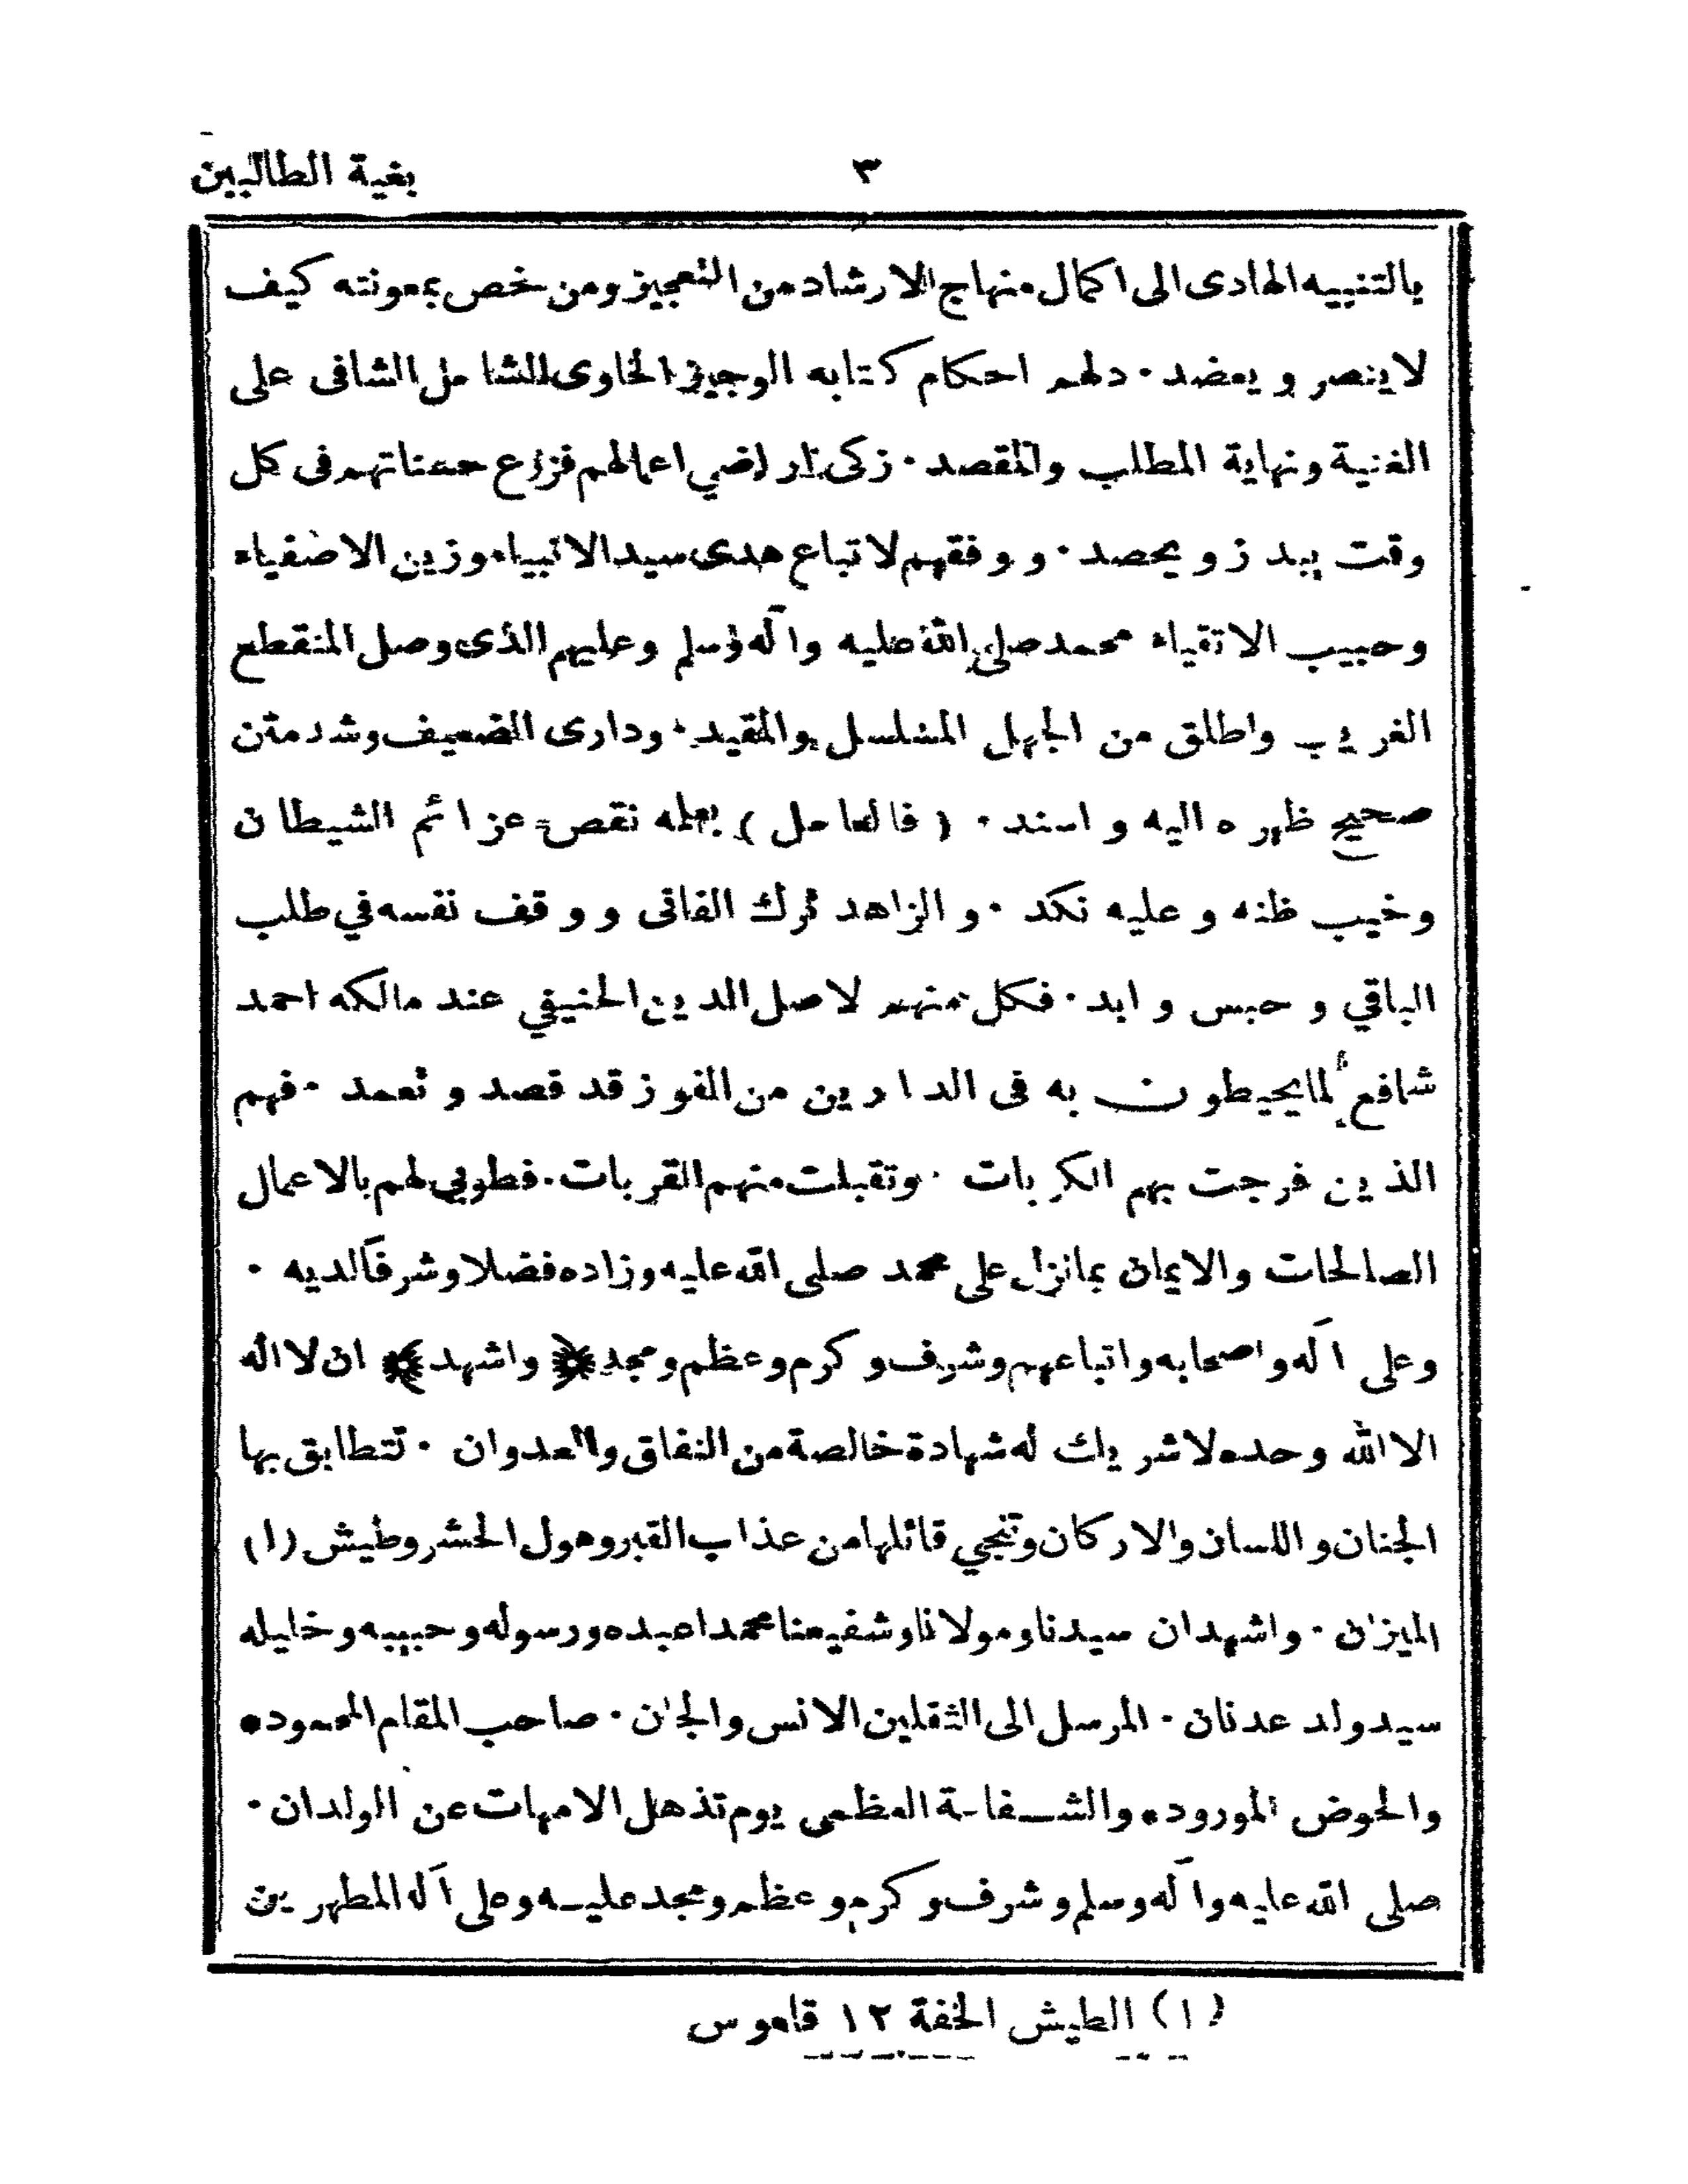 ٣ بغية الطالبين
بالتنبيه الهادى الى اكمال منهاج الارشاد من التعجيز ومن خص بمعونته كيف
لا ينصر و يعضد · دلهم احكام كتابه الوجيز الحاوى الشامل الشافى على
الغنية ونهاية المطلب والمقصد · زكى اراضي اعمالهم فزرع حسناتهم فى كل
وقت يبد ز و يحصد · و وفقهم لاتباع هدى سيد الانبياء وزين الاصفياء
وحبيب الاتقياء محمد صلى الله عليه وآله وسلم وعليهم الذى وصل المنقطع
الغريب واطلق من الجهل المسلسل والمقيد · ودارى الضعيف وشد متن
صحيح ظهره اليه و اسند · ( فالعامل ) بعلمه نقص عزائم الشيطان
وخيب ظنه و عليه نكد · و الزاهد ترك الفانى و وقف نفسه في طلب
الباقي و حبس و ابد · فكل منهم لاصل الدين الحنيفي عند مالكه احمد
شافع لما يحيطون به فى الدارين من الفوز قد قصد و تعمد · فهم
الذين فرجت بهم الكربات · وتقبلت منهم القربات · فطوبى لهم بالاعمال
الصالحات والايمان بما نزل على محمد صلى الله عليه وزاده فضلا وشرفا لديه ·
وعلى آله واصحابه واتباعهم وشرف وكرم وعظم ومجد ﴿ واشهد ﴾ ان لا اله
الا الله وحده لا شريك له شهادة خالصة من النفاق والعدوان · تتطابق بها
الجنان و اللسان والاركان وتنجي قائلها من عذاب القبر وهول الحشر وطيش (١)
الميزان · واشهد ان سيدنا ومولانا وشفيعنا محمدا عبده ورسوله وحبيبه وخليله
سيد ولد عدنان · المرسل الى الثقلين الانس والجان · صاحب المقام المحمود ·
والحوض المورود · والشفاعة العظمى يوم تذهل الامهات عن الولدان ·
صلى الله عليه وآله وسلم وشرف وكرم وعظم ومجد عليه وعلى آله المطهرين
(١) الطيش الخفة ١٢ قاموس